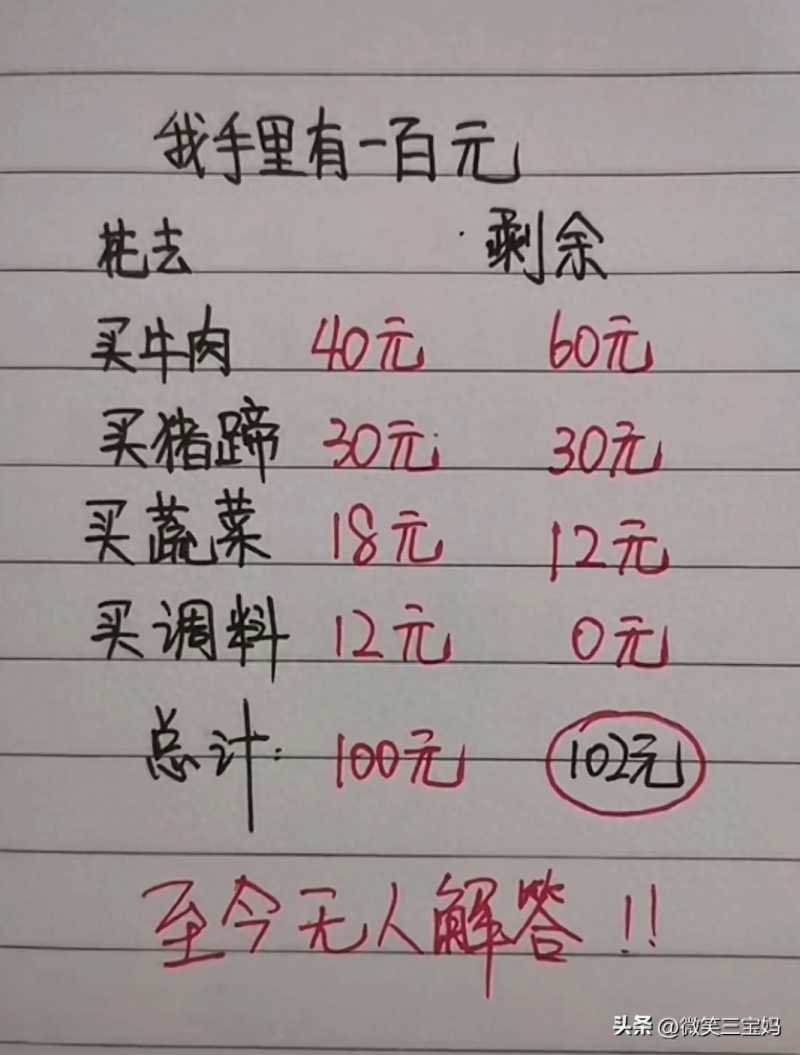 我手里有一百元
花去 剩余
买牛肉 40元 60元
买猪蹄 30元 30元
买蔬菜 18元 12元
买调料 12元 0元
总计: 100元 102元
至今无人解答!!
头条 @微笑三宝妈